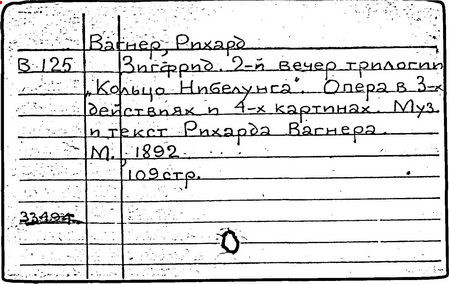 Вагнер, Рихард
В 125 Зигфрид. 2-й вечер трилогии
„Кольцо Нибелунга". Опера в 3-х
действиях и 4-х картинах. Муз.
и текст Рихарда Вагнера.
М., 1892.
109 стр.
33494